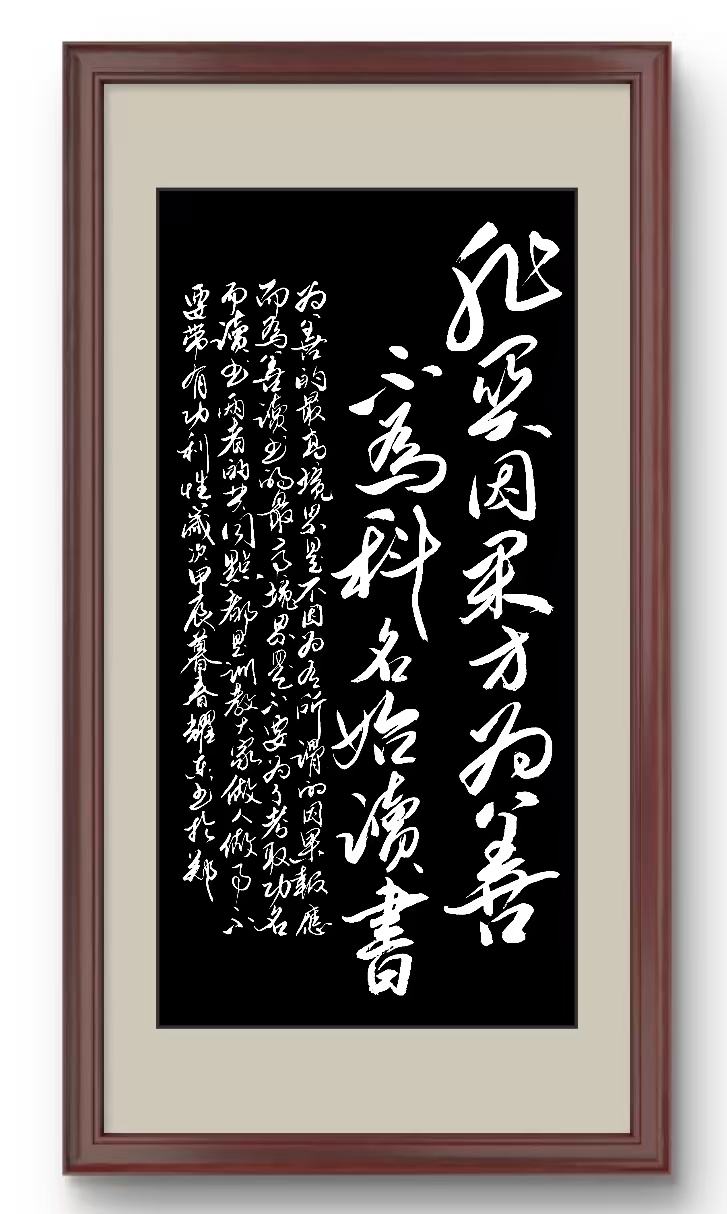 非関因果方为善
不為科名始讀書
为善的最高境界是不因为有所謂的因果報應
而為善读书的最高境界是不要为了考取功名
而讀书两者的共同點都是训教大家做人做事不
要带有功利性歲次甲辰暮春耀东书於郑